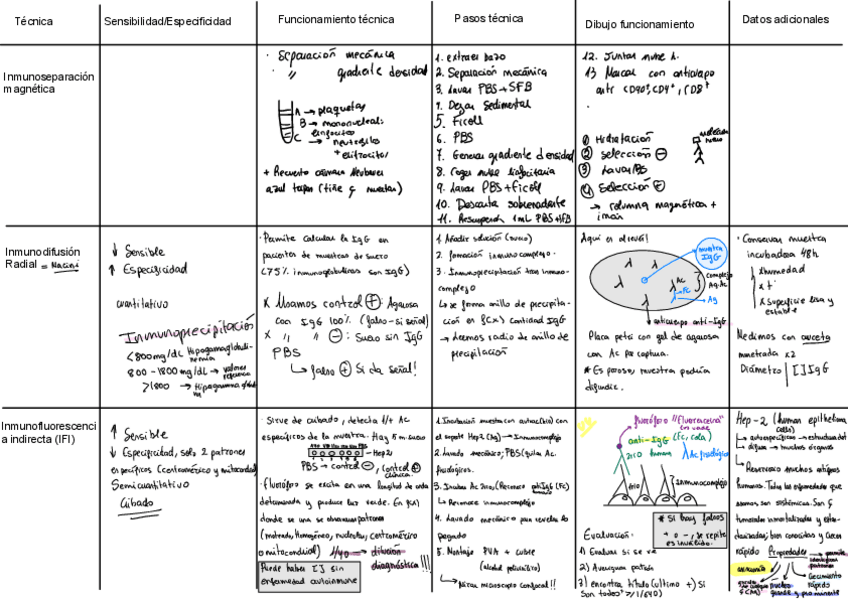 Técnica
Sensibilidad/Especificidad
Funcionamiento técnica
Pasos técnica
Dibujo funcionamiento
Datos adicionales
Inmunoseparación
magnética
· Separación mecánica
· " gradiente densidad
A → plaquetas
B → mononuclear:
linfocitos
C → neutrófilo
+ eritrocitos
+ Recuento cámara Neubauer
azul tripan (tiñe y muertas)
1. extraer bazo
2. Separación mecánica
3. lavar PBS + SFB
4. Dejar Sedimentar
5. Ficoll
6. PBS
7. Generar gradiente densidad
8. Coger nube linfocitaria
9. lavar PBS + Ficoll
10. Descarta sobrenadante
11. Resuspende 1mL PBS+SFB
12. Juntar nube L.
13 Marcar con anticuerpo
anti CD40, CD4+, CD8+
① Hidratación
② Selección ⊖
③ lavar PBS
④ Selección ⊕
→ columna magnética +
imán
Inmunodifusión
Radial = Mancini
↓ Sensible
↑ Especificidad
cuantitativo
Inmunoprecipitación
<800mg/dL Hipogammaglobuli-
nemia
800 - 1800 mg/dL → valores
referencia
>1800 →
· Permite calcular la IgG en
pacientes de muestras de suero
(75% inmunoglobulinas son IgG)
X Usamos control ⊕: Agarosa
con IgG 100% (falso - si señal)
X " " ⊖: Suero sin IgG
PBS
↳ falso ⊕ Si da señal!
1. Añadir solución (suero)
2. formación inmunocomplejo.
3. Inmunoprecipitación tras inmuno-
complejo
↳ se forma anillo de precipita-
ción en f(x) cantidad IgG
→ leemos radio de anillo de
precipitación
Aquí es al revés!
muestra
IgG
Ac
Fc
Ag
complejo
Ag-Ac
anticuerpo anti-IgG
Placa petri con gel de agarosa
con Ac pa captura.
* Es poroso, muestra podría
difundir.
· Conservar muestra
incubadora 48h
x humedad
x t°
x Superficie lisa y
estable
Medimos con
mmetrada x2
Diámetro | [ ] IgG
Inmunofluorescenci
a indirecta (IFI)
↑ Sensible
↓ Especificidad, solo 2 patrones
específicos (centromérico y mitocondrial)
Semicuantitativo
Cribado
· Sirve de cribado, detecta f/t Ac
específicos de la muestra. Hay 5 m. suero
Hep2
PBS → control ⊖, control ⊕
· fluoróforo se excita en una longitud de onda
determinada y produce luz verde. En f(x)
donde se una se observaran patrones
(moteado, Homogéneo, nucleolar, centromérico
o mitocondrial) 1/40 → dilución
diagnóstica!!!
Puede haber [ ] sin
enfermedad autoinmune
1. Incubación muestra con autoac(bio) con
el soporte Hep2 (Ag) → Inmunocomplejo
2. lavado mecánico; PBS (quita Ac.
fisiológicos.
3. Incubar Ac 2rio, (Reconoce anti IgG (Fc)
↳ Reconoce inmunocomplejo
4. Lavado mecánico para revelar lo
pegado
5. Montaje PVA + cubre
(alcohol polivinílico)
↳ Mirar microscopio confocal!!!
fluorófoto "fluoresceína"
anti-IgG (Fc, cola)
2rio humana
Ac fisiológico
Inmunocomplejo
* Si hay falsos
+ o -, se repite
es inválido.
Evaluación:
1) Evaluar si se ve
2) Averiguar patrón
3) encontra título (último +) si
son todos + >/1/640)
Hep-2 (human epithelima
cells)
↳ difusa → muchos órganos
Reconoce muchos antígenos
humanos. Todas las enfermedades que
usamos son sistémicas. Son ç
tumorales inmortalizadas y estan-
darizadas; bien conocidas y crecen
rápido Propiedades
Crecimiento
Rápido